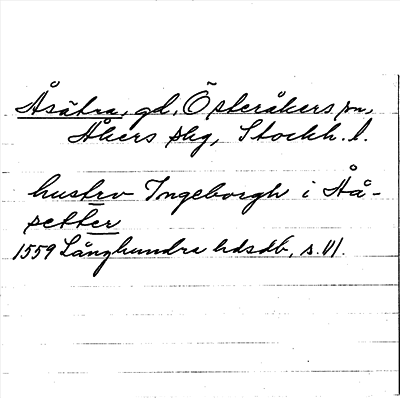 Åsätra, gd, Österåkers sn,
Åkers skg, Stockh. l.
hustrv Ingeborgh i Åå-
setter
1559 Långhundra hdsdb, s. VI.